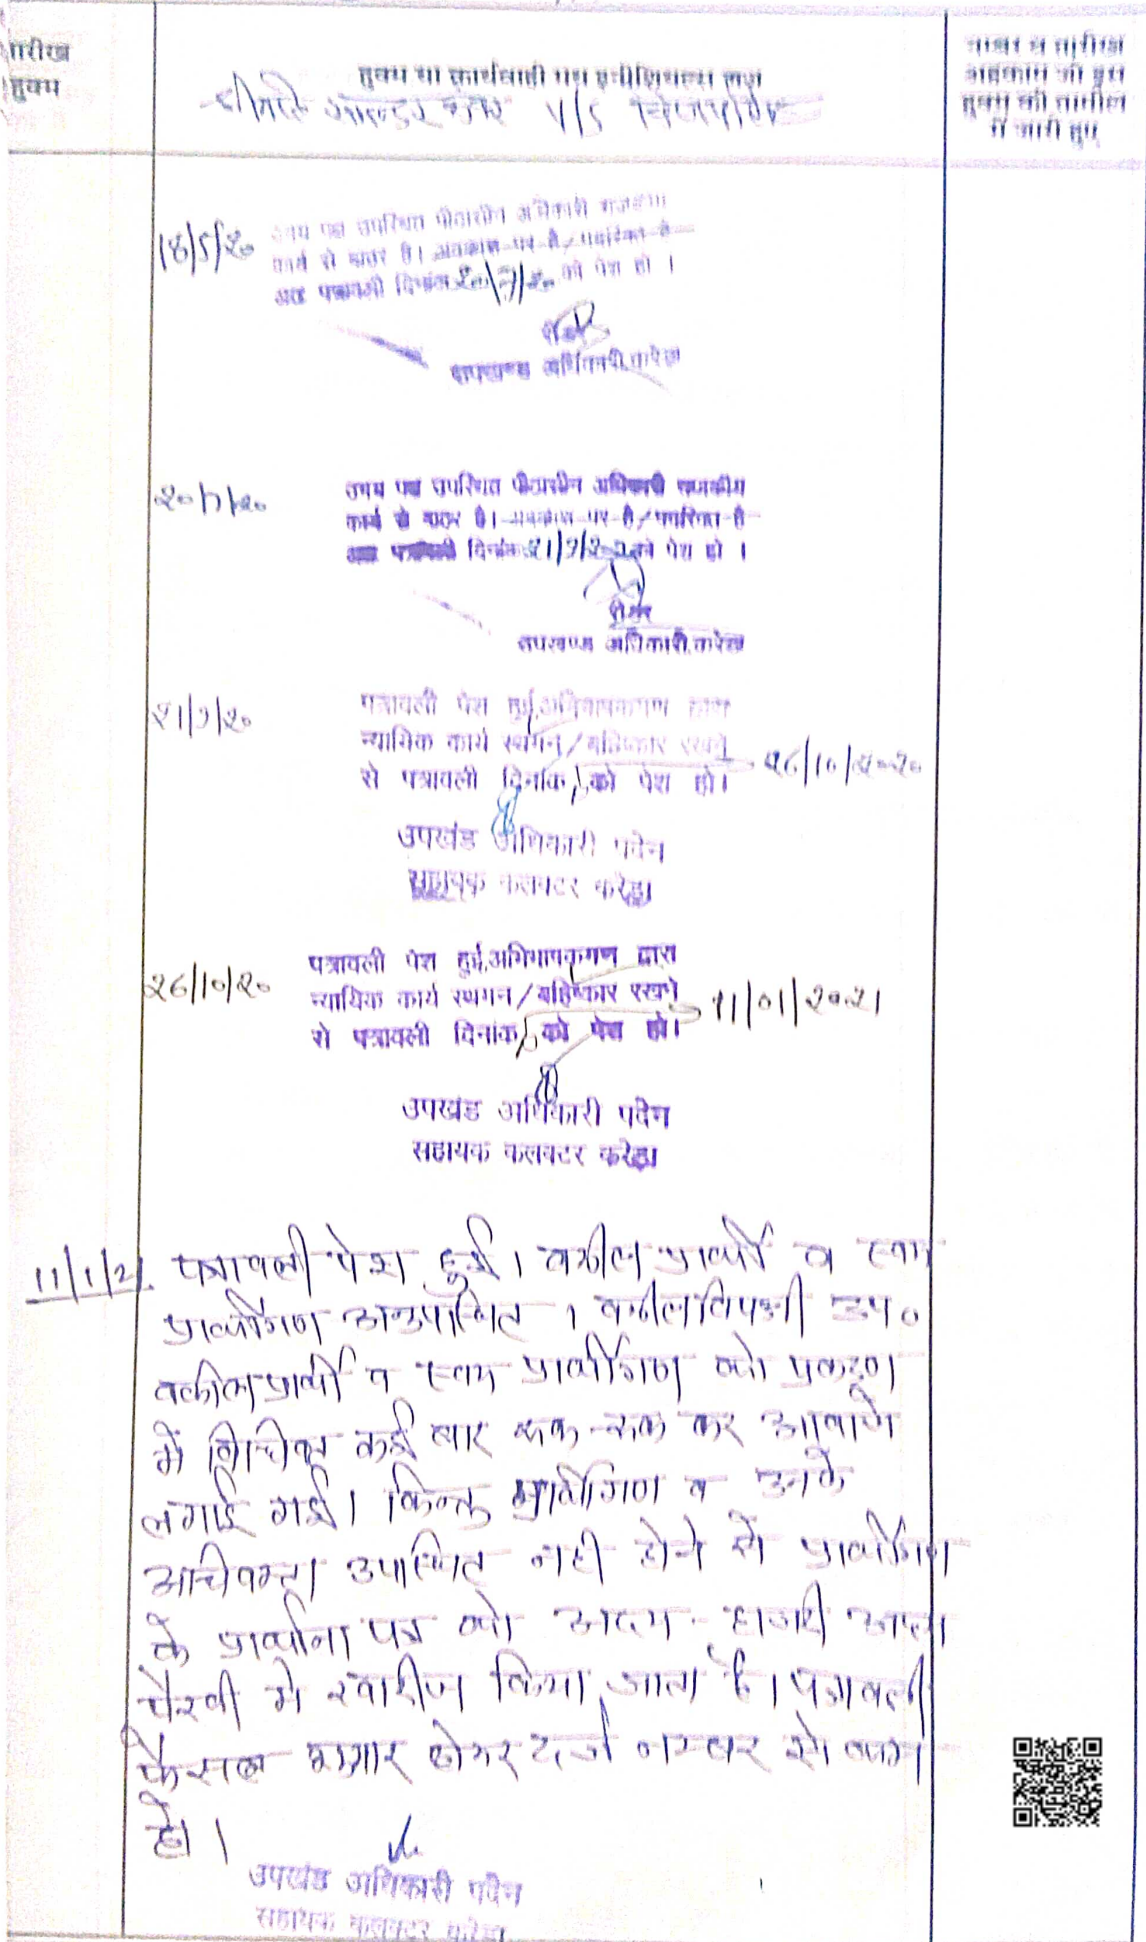 तारीख
हुक्म
हुक्म या कार्यवाही मय इनीशियल्स जज
नम्बर व तारीख
अहकाम जो इस
हुक्म की तामील
में जारी हुए
V/S
18/5/२०
उभय पक्ष उपस्थित पीठासीन अधिकारी राजकीय
कार्य से बाहर है। अवकाश पर है/
अतः पत्रावली दिनांक २०/7/२० को पेश हो ।
रीडर
उपखण्ड अधिकारी, करेड़ा
२०/7/२०
उभय पक्ष उपस्थित पीठासीन अधिकारी राजकीय
कार्य से बाहर है। अवकाश पर है/
अतः पत्रावली दिनांक २1/7/२० को पेश हो ।
रीडर
उपखण्ड अधिकारी, करेड़ा
२1/7/२०
पत्रावली पेश हुई,अभिभाषकगण द्वारा
न्यायिक कार्य स्थगन/बहिष्कार रखने
से पत्रावली दिनांक को पेश हो। २6/10/२०२०
उपखंड अधिकारी पदेन
सहायक कलक्टर करेड़ा
२6/10/२०
पत्रावली पेश हुई,अभिभाषकगण द्वारा
न्यायिक कार्य स्थगन/बहिष्कार रखने
से पत्रावली दिनांक को पेश हो। 11/01/२०२1
उपखंड अधिकारी पदेन
सहायक कलक्टर करेड़ा
11/1/21. पत्रावली पेश हुई। वकील प्रार्थी व स्वयं
प्रार्थीगण अनुपस्थित । वकील विपक्षी उप०
वकील प्रार्थी व स्वयं प्रार्थीगण को प्रकरण
में कई बार रूक-रूक कर आवाजे
लगाई गई। किन्तु प्रार्थीगण व उनके
अधिवक्ता उपस्थित नही होने से प्रार्थीगण
के प्रार्थना पत्र को अदम-हाजरी अदम
पैरवी में खारीज किया जाता है। पत्रावली
फैसल शुमार होकर दर्ज नम्बर से कम
हो।
उपखंड अधिकारी पदेन
सहायक कलक्टर करेड़ा